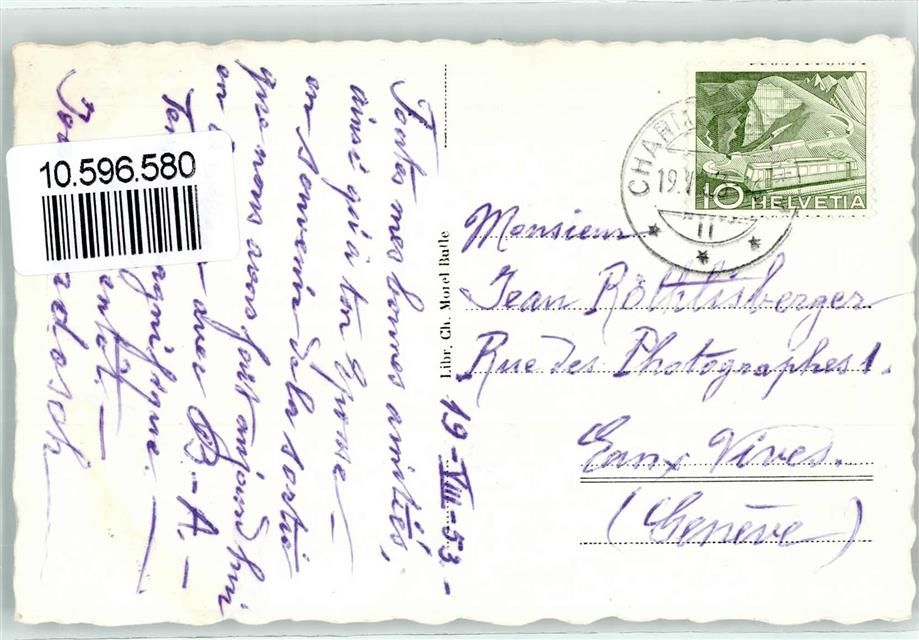 10.596.580
Toutes mes bonnes amitiés,
ainsi qu'à ton Epouse –
en souvenir de la sortie
que nous avons fait aujourd'hui
en
– avec B.-A. –
magnifique.
Libr. Ch. Morel Bulle
19-VIII-53.-
CHARM
19.V
10 HELVETIA
11
Monsieur
Jean Röthlisberger
Rue des Photographes 1.
Eaux Vives.
(Genève)